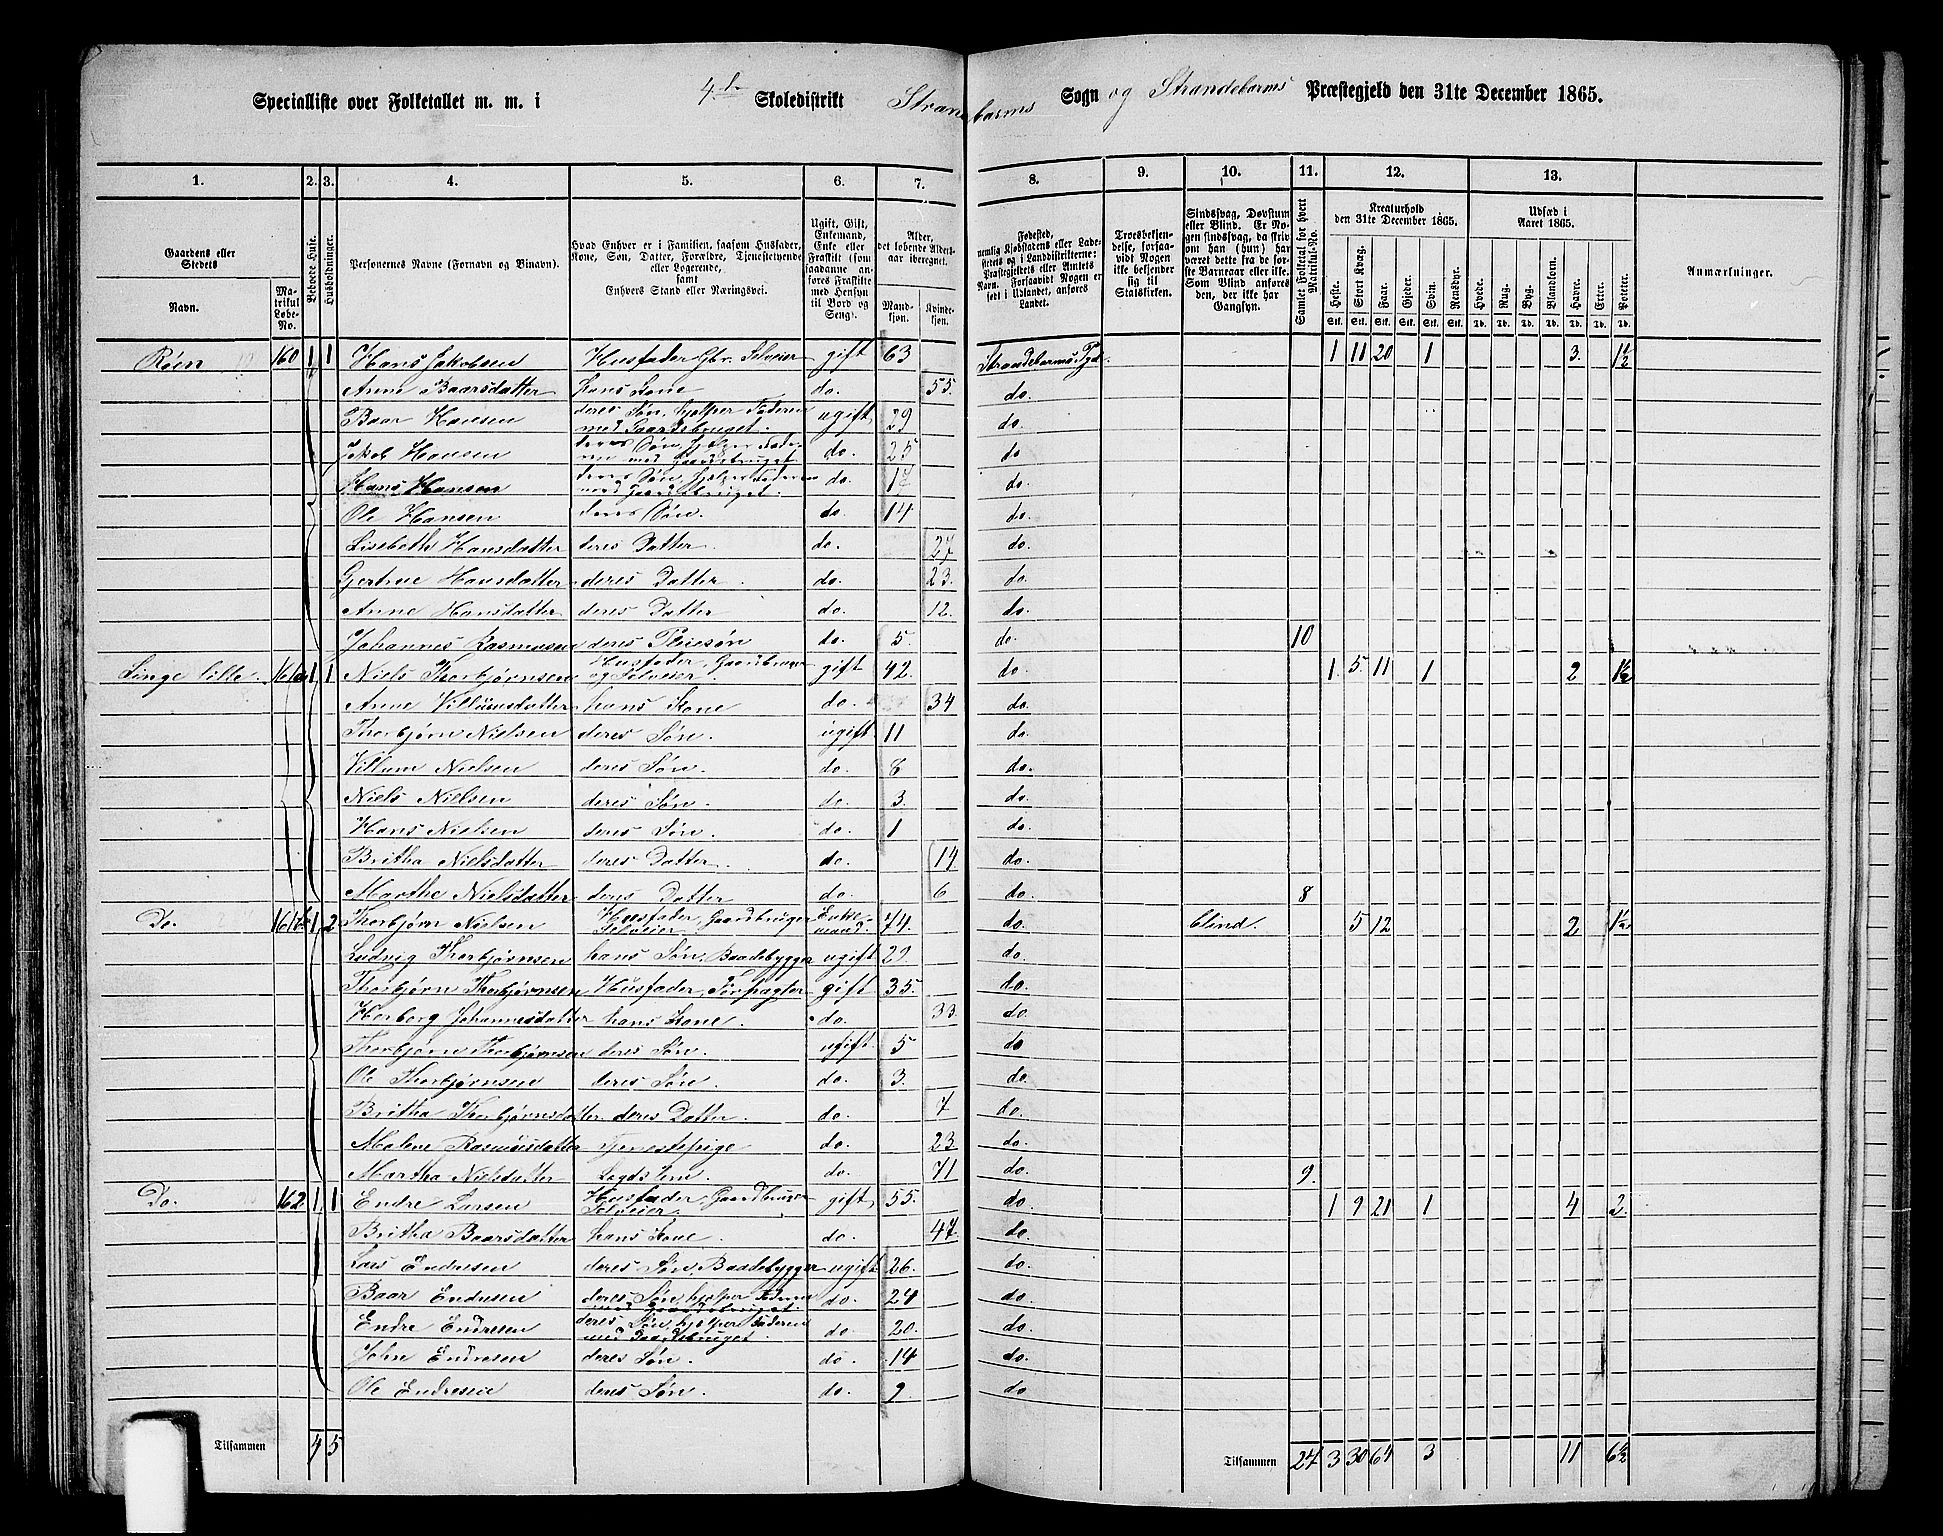 Specialliste over Folketallet m. m. i 4de Skoledistrikt Strandebarms Sogn og Strandebarms Præstegjeld den 31te December 1865.
1. 2. 3. 4. 5. 6. 7. 8. 9. 10. 11. 12. 13.
Gaardens eller Stedets
Navn.
Matrikul Løbe-No.
Beboede Huse.
Husholdninger.
Personernes Navne (Fornavn og Binavn).
Hvad Enhver er i Familien, saasom Husfader, Kone, Søn, Datter, Forældre, Tjenestetyende eller Logerende,
samt
Enhvers Stand eller Næringsvei.
Ugift, Gift, Enkemand, Enke eller Fraskilt (som saadanne anføres Fraskilte med Hensyn til Bord og Seng).
Alder, det løbende Aldersaar iberegnet.
Mandkjøn.
Kvindekjøn.
Fødested, nemlig Kjøbstadens eller Ladestedets og i Landdistrikterne: Præstegjeldets eller Amtets Navn. Forsaavidt Nogen er født i Udlandet, anføres Landet.
Troesbekjendelse, forsaavidt Nogen ikke bekjender sig til Statskirken.
Sindssvag, Døvstum eller Blind. Er Nogen sindssvag, da skriv om han (hun) har været dette fra de første Barneaar eller ikke. Som Blind anføres den, der ikke har Gangsyn.
Samlet Folketal for hvert Matrikul-No.
Kreaturhold den 31te December 1865.
Heste. Stort Kvæg. Faar. Gjeder. Svin. Rensdyr.
Stk. Stk. Stk. Stk. Stk. Stk.
Udsæd i Aaret 1865.
Hvede. Rug. Byg. Blandkorn. Havre. Erter. Poteter.
Td. Td. Td. Td. Td. Td. Td.
Anmærkninger.
Røen 160 1 1 Hans Jakobsen Husfader Gbr. Selveier gift 63 Strandebarms Pgd. 1 11 20 1 3. 1½
Anne Baarsdatter hans Kone do. 55. do.
Baar Hansen deres Søn, hjelper Faderen med Gaardsbruget. ugift 29 do.
Jakob Hansen deres Søn, hjelper Faderen med Gaardsbruget do. 25 do.
Hans Hansen deres Søn, hjelper Faderen med Gaardsbruget. do. 17 do.
Ole Hansen deres Søn. do. 14 do.
Lisebeth Hansdatter deres Datter do. 27 do.
Gjertrue Hansdatter deres Datter do. 23. do.
Anne Hansdatter deres Datter do. 12. do.
Johannes Rasmusen deres Pleiesøn do. 5. do. 10
Linge lille. 161a 1 1 Niels Thorbjørnsen Husfader, Gaardbruger og Selveier. gift 42. do. 1. 5. 11 1 2 1½
Anne Villumsdatter hans Kone do. 34 do.
Thorbjørn Nielsen deres Søn. ugift 11 do.
Villum Nielsen deres Søn. do. 8 do.
Niels Nielsen deres Søn. do. 3. do.
Hans Nielsen deres Søn. do. 1 do.
Britha Nielsdatter deres Datter. do. 14 do.
Marthe Nielsdatter deres Datter do. 6 do. 8
Do. 161b 1 2 Thorbjørn Nielsen Husfader, Gaardbruger Selveier Enkemand. 74. do. blind. 5 12 2 1½
Ludvig Thorbjørnsen hans Søn, Baadebygger ugift 29 do.
Thorbjørn Thorbjørnsen Husfader, Forpagter gift 35. do.
Herborg Johannesdatter hans Kone. do. 33. do.
Thorbjørn Thorbjørnsen deres Søn. ugift 5 do
Ole Thorbjørnsen deres Søn. do. 3. do.
Britha Thorbjørnsdatter deres Datter. do. 7 do.
Malene Rasmusdatter Tjenestepige do. 23. do.
Martha Nielsdatter Lægdslem. do. 71 do. 9.
Do. 162 1 1 Endre Larsen Husfader, Gaardbruger Selveier. gift 55. do. 1 9 21 1 4 2.
Britha Baarsdatter hans Kone do. 47. do.
Lars Endresen deres Søn, Baadebygger ugift 26. do.
Baar Endresen deres Søn, hjelper Faderen med Gaardsbruget do. 24 do.
Endre Endresen deres Søn, hjelper Faderen med Gaardsbruget. do. 20. do.
John Endresen deres Søn. do. 14 do.
Ole Endresen deres Søn. do. 9 do.
Tilsammen 4 5 Tilsammen 27 3 30 64 3 11 6½